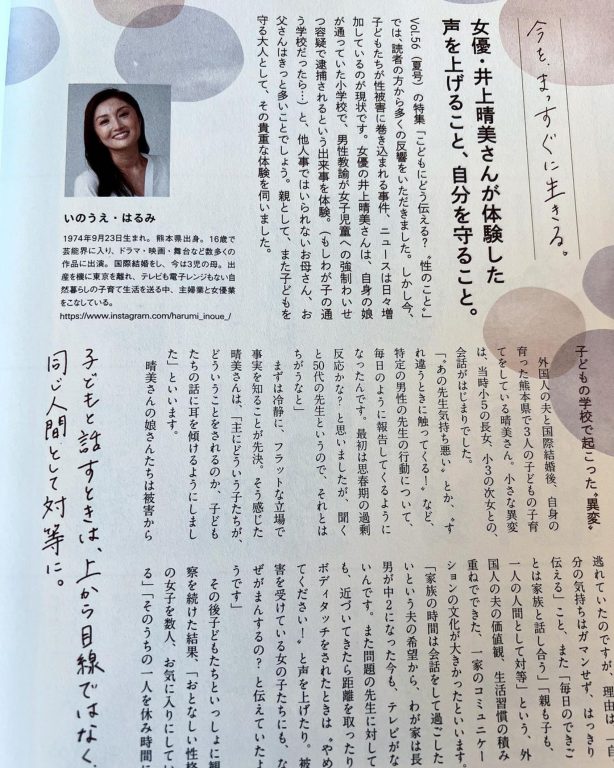 今を、まっすぐに生きる。
女優・井上晴美さんが体験した
声を上げること、自分を守ること。
Vol.56（夏号）の特集「こどもにどう伝える？ “性のこと”」
では、読者の方から多くの反響をいただきました。しかし今、
子どもたちが性被害に巻き込まれる事件、ニュースは日々増
加しているのが現状です。女優の井上晴美さんは、自身の娘
が通っていた小学校で、男性教諭が女子児童への強制わいせ
つ容疑で逮捕されるという出来事を体験。〈もしわが子の通
う学校だったら…〉と、他人事ではいられないお母さん、お
父さんはきっと多いことでしょう。親として、また子どもを
守る大人として、その貴重な体験を伺いました。
いのうえ・はるみ
1974年9月23日生まれ。熊本県出身。16歳で
芸能界に入り、ドラマ・映画・舞台など数多くの
作品に出演。国際結婚をし、今は3児の母。出
産を機に東京を離れ、テレビも電子レンジもない自
然暮らしの子育て生活を送る中、主婦業と女優業
をこなしている。
https://www.instagram.com/harumi_inoue_/
子どもの学校で起こった“異変”
外国人の夫と国際結婚後、自身の
育った熊本県で3人の子どもの子育
てをしている晴美さん。小さな異変
は、当時小5の長女、小3の次女との、
会話がはじまりでした。
「“あの先生気持ち悪い”とか、“す
れ違うときに触ってくる！”など、
特定の男性の先生の行動について、
毎日のように報告してくるように
なったんです。最初は思春期の過剰
反応かな？と思いましたが、聞く
と50代の先生というので、それとは
ちがうなと」
まずは冷静に、フラットな立場で
事実を知ることが先決。そう感じた
晴美さんは、「主にどういう子たちが、
どういうことをされるのか、子ども
たちの話に耳を傾けるようにしまし
た」といいます。
晴美さんの娘さんたちは被害から
逃れていたのですが、理由は「自
分の気持ちはガマンせず、はっきり
伝える」こと、また「毎日のでき
とは家族と話し合う」「親も子も、
一人の人間として対等」という、外
国人の夫の価値観、生活習慣の積み
重ねでできた、一家のコミュニケー
ションの文化が大きかったといいます。
「家族の時間は会話をして過ごした
いという夫の希望から、わが家は長
男が中2になった今も、テレビがな
いんです。また問題の先生に対して
も、近づいてきたら距離を取ったり
ボディタッチをされたときは“やめ
てください！”と声を上げたり。被
害を受けている女の子たちにも、な
ぜがまんするの？と伝えていたよ
うです」
その後子どもたちといっしょに観
察を続けた結果、「おとなしい性格
の女子を数人、お気に入りにしてい
る」「そのうちの一人を休み時間に
子どもと話すときは、上から目線ではなく、
同じ人間として対等に。